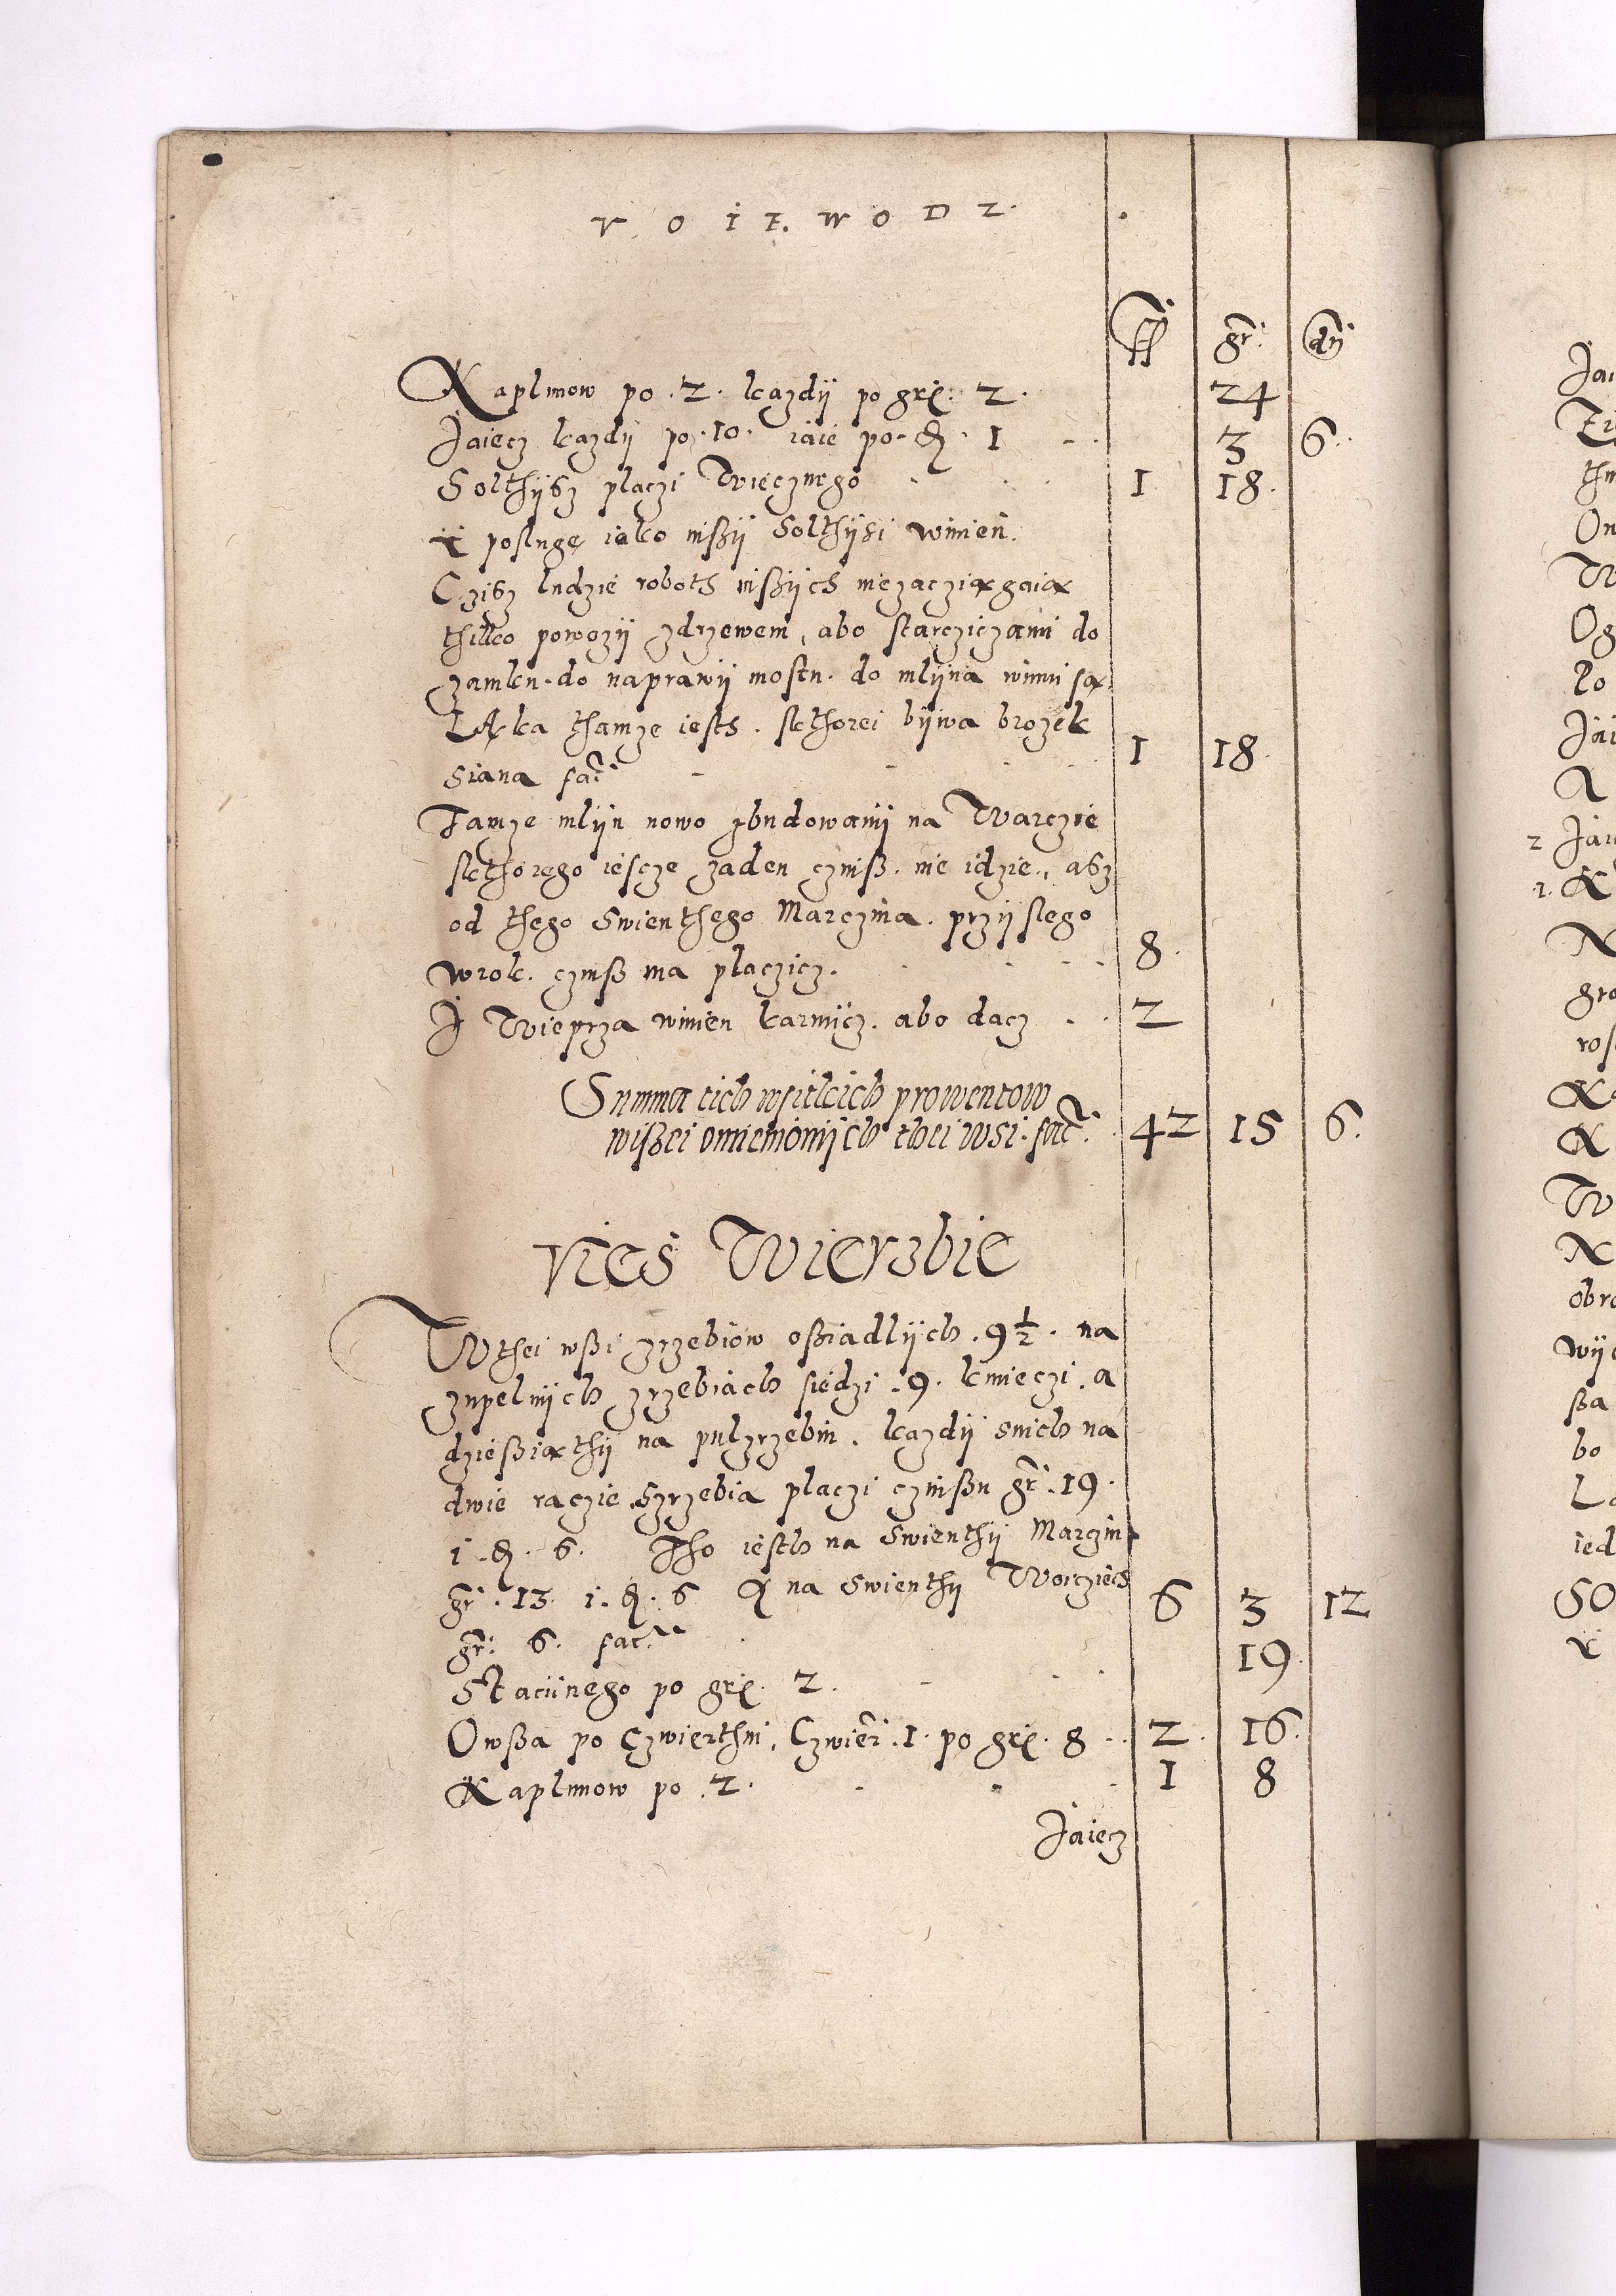 VOIEWODZ.
ff gr: dn
Kaplunow po .2. kazdy po grę: 2. 24
Jaiecz kazdy po .10. iaie po d. 1 3 6.
Solthysz placzi Wiecznego 1 18.
y posluge iako inszy Solthysi winien.
Czisz ludzie roboth inszych niezacziągaią
thilko powozy zdrzewem, abo starczczami do
zamku. do naprawy mostu. do mlyna winni są.
Ląka thamze iesth. sktorei bywa brozek
siana fac: 1 18.
Tamze mlyn nowo zbudowany na Warczie
sktorego iescze zaden czinsz. nie idzie., asz
od thego Swienthego Marczina. przyslego
wrok. czinsz ma placzicz. 8.
J Wieprza winien karmicz. abo dacz 2
Summa tich wsitkich prowentow
wiszei omienionych thei wsi. fac: 42 15 6.
Vies Wierzbie
W thei wszi zrzebiow osziadlych .9½. na
zupelnych zrzebiach siedzi .9. kmieczi. a
dziesziąthy na pulzrzebiu. kazdy snich na
dwie raczie Szrzebia placzi czinszu gr: .19.
i. d. 6. Tho iesth na Swienthy Marczin
gr: .13. i. d. 6 A na Swienthy Woicziech
gr: 6. fac: 6 3 12
Stacynego po grę. 2. 19.
Owsza po Czwierthni. Czwier: .1. po grę. 8 2. 16.
Kaplunow po .2. 1 8
Jaiecz